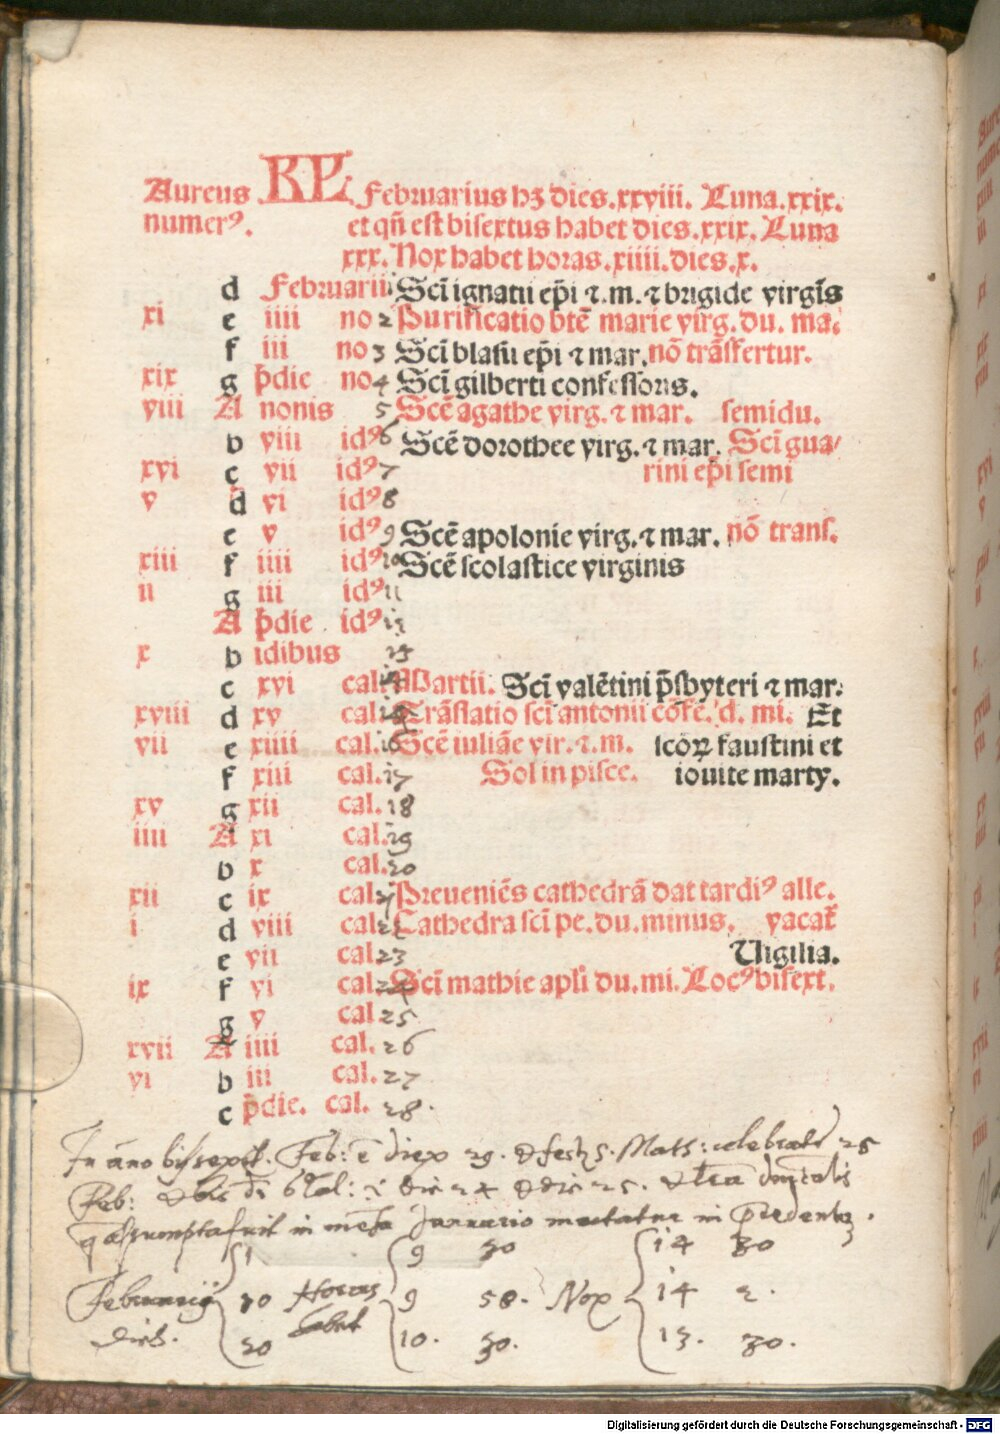 Aureus KL Februarius hʒ dies.xxviii. Luna.xxix.
numerꝰ. et qñ est bisextus habet dies.xxix. Luna
xxx. Nox habet horas.xiiii.dies.x.
d Februarii Scī ignatii ep̄i ⁊.m.⁊ brigide virgīs
xi e iiii no 2 Purificatio btē marie virg.du. ma.
f iii no 3 Scī blasii ep̄i ⁊ mar. nō trāsfertur.
xix g p̄die no 4 Scī gilberti confessoris.
viii A nonis 5 Scē agathe virg. ⁊ mar. semidu.
b viii idꝰ 6 Scē dorothee virg. ⁊ mar. Scī gua/
xvi c vii idꝰ 7 rini ep̄i semi
v d vi idꝰ 8
e v idꝰ 9 Scē apolonie virg. ⁊ mar. nō trans.
xiii f iiii idꝰ 10 Scē scolastice virginis
ii g iii idꝰ 11
A p̄die idꝰ 12
x b idibus 13
c xvi cal. 14 Martii. Scī valētini p̄sbyteri ⁊ mar.
xviii d xv cal. 15 Trāslatio scī antonii cōfe. d. mi. Et
vii e xiiii cal. 16 Scē iuliāe vir. ⁊.m. scōꝝ faustini et
f xiii cal. 17 Sol in pisce. iouite marty.
xv g xii cal. 18
iiii A xi cal. 19
b x cal. 20
xii c ix cal. 21 Preueniēs cathedrā dat tardiꝰ alle.
i d viii cal. 22 Cathedra scī pe. du. minus. vacat̄
e vii cal. 23 Uigilia.
ix f vi cal. 24 Scī mathie apl̄i du. mi. Locꝰ bisext.
g v cal 25
xvii A iiii cal. 26
vi b iii cal. 27
c p̄die. cal. 28.
In āno bissexti. Feb: ē diex 29. & fest S. Math: celebratr 25
Feb: & bis 6 Cal: die 24 & die 25. & lrā
assumpta fuit in mēse Januario mutatur in
1 9 30 14 30
Februarij 10 Horas 9 58. Nox 14 2.
dies. 20 habet 10. 30. 13. 30.
Digitalisierung gefördert durch die Deutsche Forschungsgemeinschaft - DFG